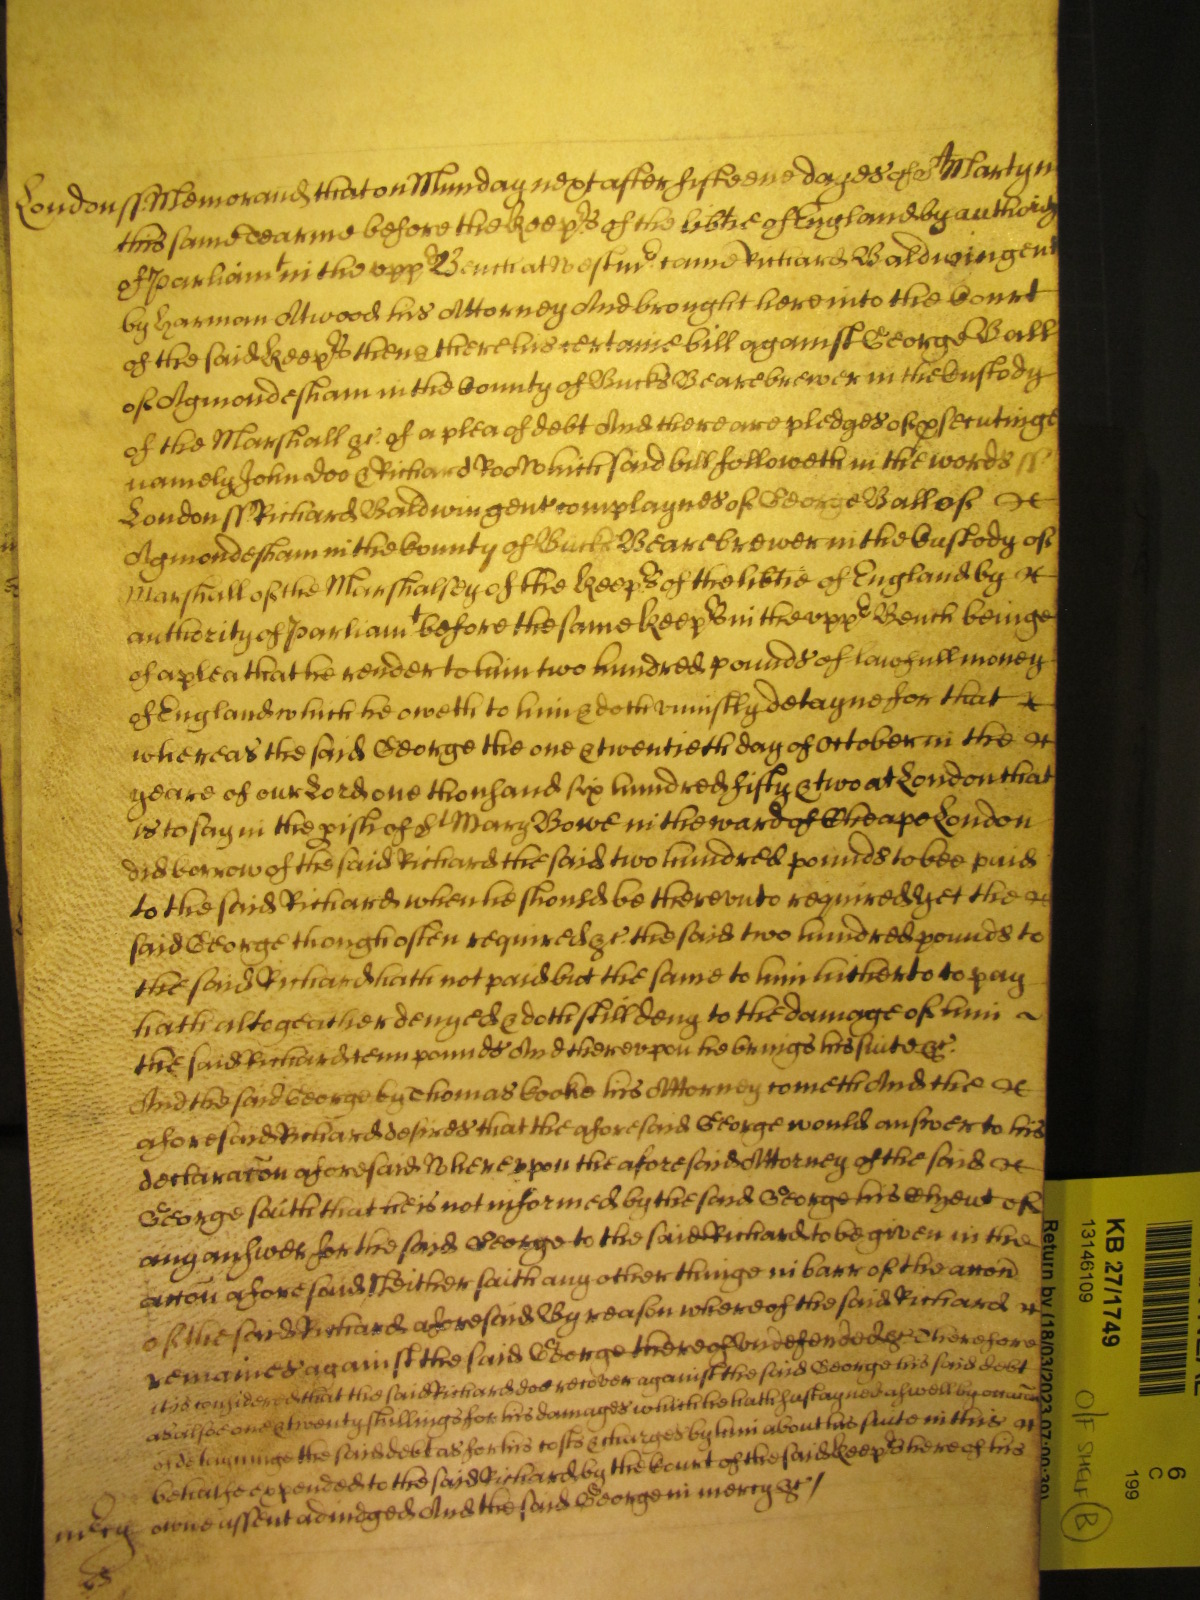 London ss Memorand that on Munday next after fifteene dayes of St Martyn
this same Tearme before the keeprs of the libtie of England by authority
of Parliamt in the vppr Bench at Westmr came Richard Baldwin gent
by Harman Atwood his Attorney And brought here into the Court
of the said keeprs then & there his certaine bill against George Ball
of Agmondesham in the County of Bucks Bearebrewer in the Custody
of the Marshall &c of a plea of debt And there are pledges of psecutinge
namely John Doo & Richard Roo Which said bill followeth in these words ss
London ss Richard Baldwin gent complaynes of George Ball of
Agmondesham in the County of Bucks Bearebrewer in the Custody of
Marshall of the Marshalsey of the keeprs of the libtie of England by
authority of Parliamt before the same keeprs in the vppr Bench beinge
of a plea that he render to him two hundred pounds of lawfull money
of England which he oweth to him & doth vniustly detayne for that
whereas the said George the one & twentieth day of October in the
yeare of our Lord one thousand six hundred fifty & two at London that
is to say in the pish of St Mary Bowe in the ward of Cheape London
did borrow of the said Richard the said two hundred pounds to bee paid
to the said Richard when he should be therevnto required yet the
said George though often required &c the said two hundred pounds to
the said Richard hath not paid but the same to him hitherto to pay
hath altogeather denyed & doth still deny to the damage of him
the said Richard tenn pounds And therevpon he brings his suite &c.
And the said George by Thomas Cooke his Attorney cometh And the
aforesaid Richard desires that the aforesaid George would answer to his
declaracon aforesaid Wherevpon the aforesaid Attorney of the said
George saith that he is not informed by the said George his Clyent of
any answer for the said George to the said Richard to be given in the
accon aforesaid Neither saith any other thinge in barr of the accon
of the said Richard aforesaid By reason whereof the said Richard
remaines against the said George thereof vndefended &c Therefore
it is considered that the said Richard doe recover against the said George his said debt
as alsoe one & twenty shillings for his damages which he hath sustayned aswell by occacon
of detayninge the said debt as for his costs & charges by him about his suite in this
behalfe expended to the said Richard by the Court of the said keeprs here of his
mercy owne assent adiudged And the said George in mercy &c /
KB 27/1749
13146109
Return by (18/03/2023 07:00:39)
OFF SHELF B
6
C
199